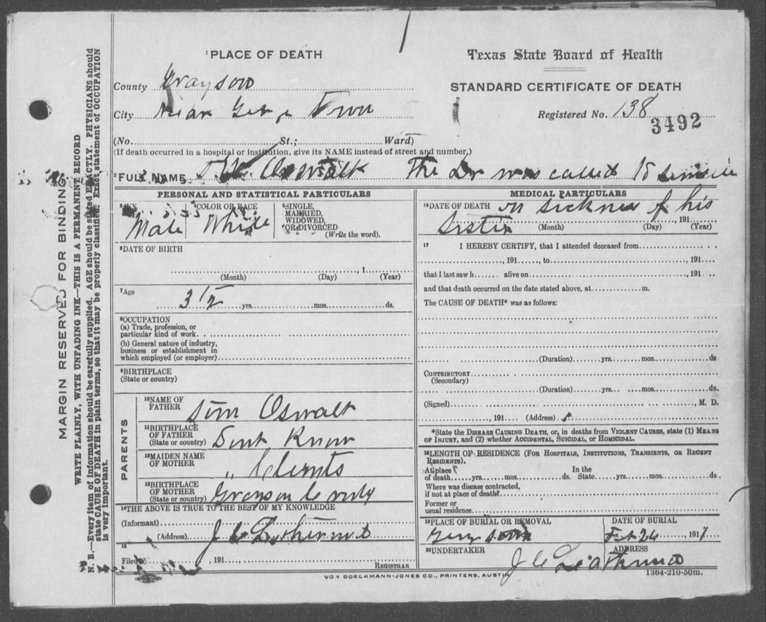 ¹PLACE OF DEATH
County Grayson
City near George Town
(No. St.; Ward)
(If death occurred in a hospital or institution, give its NAME instead of street and number,)
Texas State Board of Health
STANDARD CERTIFICATE OF DEATH
Registered No. 138
3492
²FULL NAME Oswalt The Dr was called
PERSONAL AND STATISTICAL PARTICULARS
³SEX Male
⁴COLOR OR RACE White
⁵SINGLE,
MARRIED,
WIDOWED,
OR DIVORCED
(Write the word).
⁶DATE OF BIRTH
, 1
(Month) (Day) (Year)
⁷Age 3 1/2 yrs. mos. ds.
⁸OCCUPATION
(a) Trade, profession, or
particular kind of work.
(b) General nature of industry,
business or establishment in
which employed (or employer)
⁹BIRTHPLACE
(State or country)
PARENTS
¹⁰NAME OF
FATHER Oswalt
¹¹BIRTHPLACE
OF FATHER Dont Know
(State or country)
¹²MAIDEN NAME
OF MOTHER "
¹³BIRTHPLACE
OF MOTHER Grayson County
(State or country)
¹⁴THE ABOVE IS TRUE TO THE BEST OF MY KNOWLEDGE
(Informant)
(Address). J C
¹⁵
Filed , 191 REGISTRAR
MEDICAL PARTICULARS
¹⁶DATE OF DEATH on sickness of his
Sister , 191
(Month) (Day) (Year)
¹⁷ I HEREBY CERTIFY, that I attended deceased from
, 191 , to , 191
that I last saw h alive on , 191
and that death occurred on the date stated above, at m.
The CAUSE OF DEATH* was as follows:
(Duration) yrs. mos. ds
CONTRIBUTORY
(Secondary)
(Duration) yrs. mos. ds.
(Signed) , M. D.
, 191 . (Address)
*State the DISEASE CAUSING DEATH, or, in deaths from VIOLENT CAUSES, state (1) MEANS
OF INJURY, and (2) whether ACCIDENTAL, SUICIDAL, or HOMICIDAL.
¹⁸LENGTH OF RESIDENCE (FOR HOSPITALS, INSTITUTIONS, TRANSIENTS, OR RECENT
RESIDENTS).
At place In the
of death yrs. mos. ds. State yrs. mos. ds.
Where was disease contracted,
if not at place of death?
Former or
usual residence.
¹⁹PLACE OF BURIAL OR REMOVAL
DATE OF BURIAL
Feb 26, 1917
²⁰UNDERTAKER
J C
ADDRESS
VON BOECKMANN-JONES CO., PRINTERS, AUSTIN
1364-210-50m.
MARGIN RESERVED FOR BINDING
WRITE PLAINLY, WITH UNFADING INK—THIS IS A PERMANENT RECORD
N. B.—Every item of information should be carefully supplied. AGE should be stated EXACTLY. PHYSICIANS should
state CAUSE OF DEATH in plain terms, so that it may be properly classified. Exact statement of OCCUPATION
is very important.